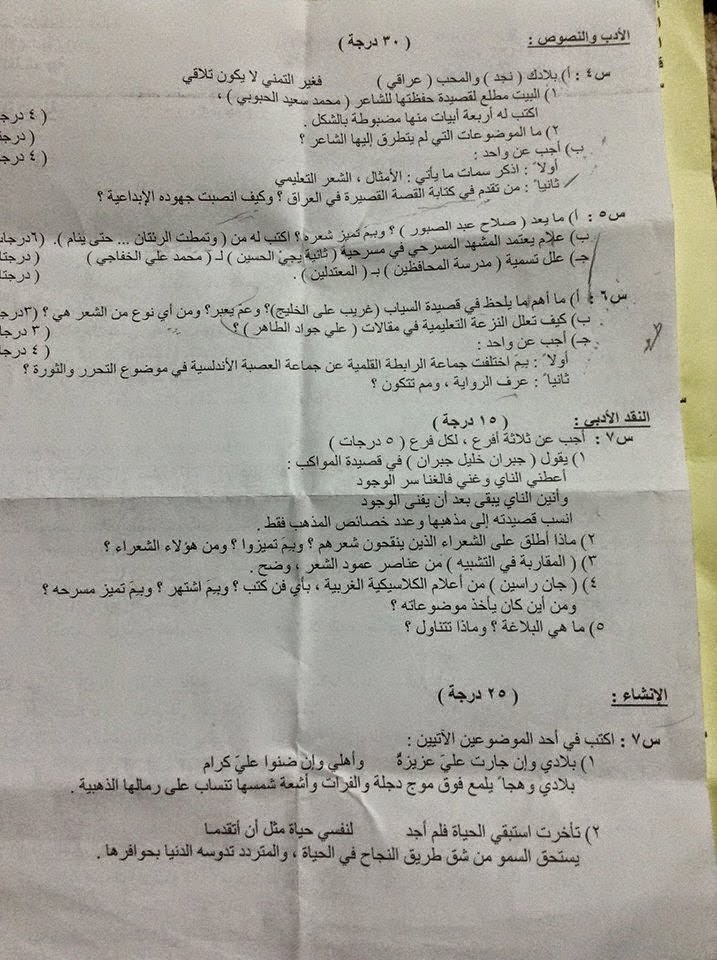 الأدب والنصوص : ( ٣٠ درجة )
س٤ : أ) بلادك ( نجد ) والمحب ( عراقي ) فغير التمني لا يكون تلاقي
١) البيت مطلع لقصيدة حفظتها للشاعر ( محمد سعيد الحبوبي ) ،
اكتب له أربعة أبيات منها مضبوطة بالشكل . ( ٤ درجا
٢) ما الموضوعات التي لم يتطرق إليها الشاعر ؟ ( درجت
ب) أجب عن واحد : ( ٤ درجا
أولاً : اذكر سمات ما يأتي : الأمثال ، الشعر التعليمي
ثانياً : من تقدم في كتابة القصة القصيرة في العراق ؟ وكيف انصبت جهوده الإبداعية ؟
س٥ : أ) ما يعد ( صلاح عبد الصبور ) ؟ وبمَ تميز شعره ؟ اكتب له من ( وتمطت الرئتان ... حتى ينام ). ( ٦درجات
ب) علام يعتمد المشهد المسرحي في مسرحية ( ثانية يجيّ الحسين ) لـ ( محمد علي الخفاجي ) ( درجتا
جـ) علل تسمية ( مدرسة المحافظين ) بـ ( المعتدلين ) . ( درجتا
س٦ : أ) ما أهم ما يلحظ في قصيدة السياب (غريب على الخليج)؟ وعمَ يعبر؟ ومن أي نوع من الشعر هي ؟ (٣درج
ب) كيف تعلل النزعة التعليمية في مقالات ( علي جواد الطاهر ) ؟ ( ٣ درجا
جـ) أجب عن واحد : ( ٤ درجا
أولاً : بمَ اختلفت جماعة الرابطة القلمية عن جماعة العصبة الأندلسية في موضوع التحرر والثورة ؟
ثانياً : عرف الرواية ، ومم تتكون ؟
النقد الأدبي : ( ١٥ درجة )
س٧ : أجب عن ثلاثة أفرع ، لكل فرع ( ٥ درجات )
١) يقول ( جبران خليل جبران ) في قصيدة المواكب :
أعطني الناي وغني فالغنا سر الوجود
وأنين الناي يبقى بعد أن يفنى الوجود
انسب قصيدته إلى مذهبها وعدد خصائص المذهب فقط .
٢) ماذا أطلق على الشعراء الذين ينقحون شعرهم ؟ وبمَ تميزوا ؟ ومن هؤلاء الشعراء ؟
٣) ( المقاربة في التشبيه ) من عناصر عمود الشعر ، وضح .
٤) ( جان راسين ) من أعلام الكلاسيكية الغربية ، بأي فن كتب ؟ وبمَ اشتهر ؟ وبمَ تميز مسرحه ؟
ومن أين كان يأخذ موضوعاته ؟
٥) ما هي البلاغة ؟ وماذا تتناول ؟
الإنشاء : ( ٢٥ درجة )
س٧ : اكتب في أحد الموضوعين الآتيين :
١) بلادي وإن جارت عليّ عزيزةٌ وأهلي وإن ضنوا عليّ كرام
بلادي وهجاً يلمع فوق موج دجلة والفرات وأشعة شمسها تنساب على رمالها الذهبية .
٢) تأخرت استبقي الحياة فلم أجد لنفسي حياة مثل أن أتقدما
يستحق السمو من شق طريق النجاح في الحياة ، والمتردد تدوسه الدنيا بحوافرها .